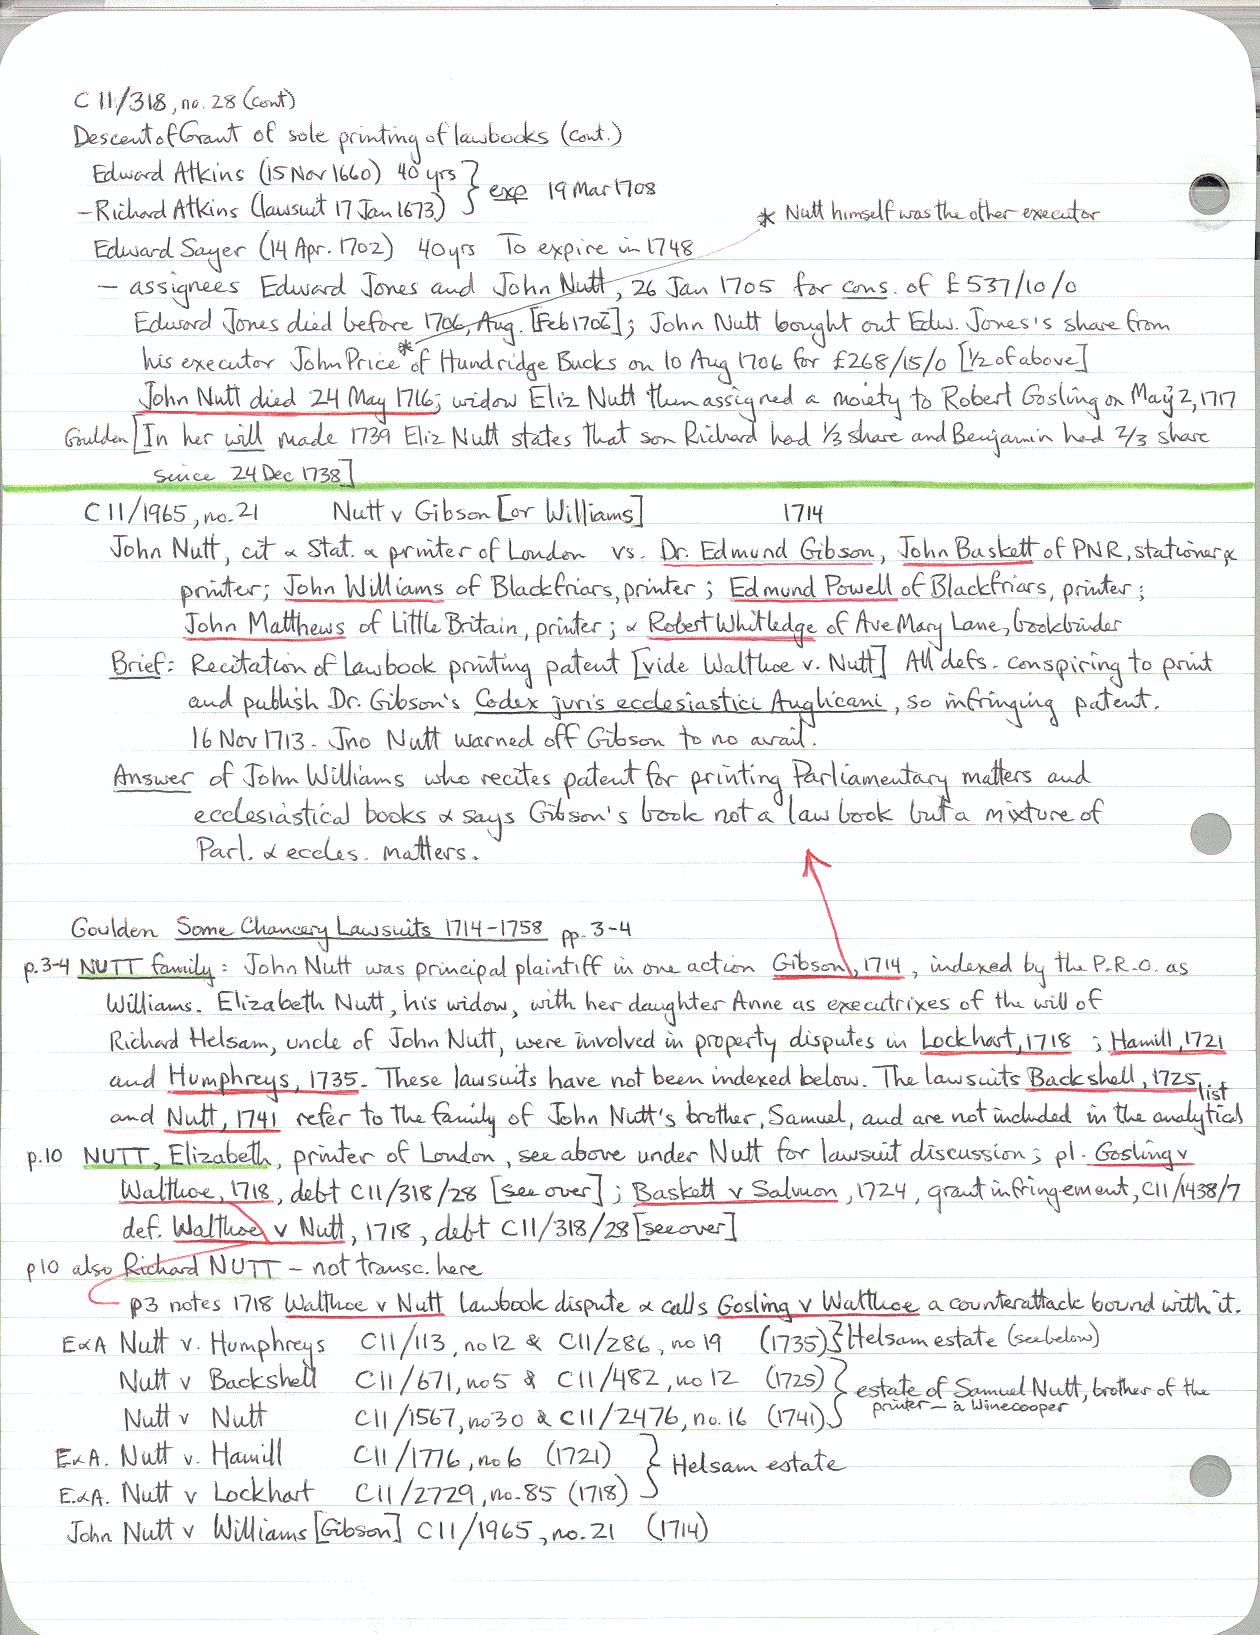 C 11/318, no. 28 (cont)
Descent of Grant of sole printing of lawbooks (cont.)
Edward Atkins (15 Nov 1660) 40 yrs } exp 19 Mar 1708
- Richard Atkins (lawsuit 17 Jan 1673)
* Nutt himself was the other executor
Edward Sayer (14 Apr. 1702) 40 yrs To expire in 1748
- assignees Edward Jones and John Nutt, 26 Jan 1705 for cons. of £537/10/0
Edward Jones died before 1706, Aug. [Feb 1706]; John Nutt bought out Edw. Jones's share from
his executor John Price * of Hundridge Bucks on 10 Aug 1706 for £268/15/0 [1/2 of above]
John Nutt died 24 May 1716; widow Eliz Nutt then assigned a moiety to Robert Gosling on May 2, 1717
Goulden [In her will made 1739 Eliz Nutt states that son Richard had 1/3 share and Benjamin had 2/3 share
since 24 Dec 1738]
C 11/1965, no. 21 Nutt v Gibson [or Williams] 1714
John Nutt, cit & Stat. & printer of London vs. Dr. Edmund Gibson, John Baskett of PNR, stationer &
printer; John Williams of Blackfriars, printer; Edmund Powell of Blackfriars, printer;
John Matthews of Little Britain, printer; & Robert Whitledge of Ave Mary Lane, bookbinder
Brief: Recitation of lawbook printing patent [vide Walthoe v. Nutt] All defs. conspiring to print
and publish Dr. Gibson's Codex juris ecclesiastici Anglicani, so infringing patent.
16 Nov 1713 - Jno Nutt warned off Gibson to no avail.
Answer of John Williams who recites patent for printing Parliamentary matters and
ecclesiastical books & says Gibson's book not a law book but a mixture of
Parl. & eccles. matters.
Goulden Some Chancery Lawsuits 1714-1758 pp. 3-4
p.3-4 NUTT family: John Nutt was principal plaintiff in one action Gibson, 1714, indexed by the P.R.O. as
Williams. Elizabeth Nutt, his widow, with her daughter Anne as executrixes of the will of
Richard Helsam, uncle of John Nutt, were involved in property disputes in Lockhart, 1718; Hamill, 1721
and Humphreys, 1735. These lawsuits have not been indexed below. The lawsuits Backshell, 1725
and Nutt, 1741 refer to the family of John Nutt's brother, Samuel, and are not included in the analytical list
p.10 NUTT, Elizabeth, printer of London, see above under Nutt for lawsuit discussion; pl. Gosling v
Walthoe, 1718, debt C11/318/28 [see over]; Baskett v Salmon, 1724, grant infringement, C11/1438/7
def. Walthoe v Nutt, 1718, debt C11/318/28 [see over]
p10 also Richard NUTT - not transc. here
p3 notes 1718 Walthoe v Nutt lawbook dispute & calls Gosling v Walthoe a counterattack bound with it.
E & A Nutt v. Humphreys C11/113, no 12 & C11/286, no 19 (1735) } Helsam estate (see below)
Nutt v Backshell C11/671, no 5 & C11/482, no 12 (1725) } estate of Samuel Nutt, brother of the
printer - a Winecooper
Nutt v Nutt C11/1567, no 30 & C11/2476, no. 16 (1741)
E & A. Nutt v. Hamill C11/1776, no 6 (1721) } Helsam estate
E. & A. Nutt v Lockhart C11/2729, no. 85 (1718)
John Nutt v Williams [Gibson] C11/1965, no. 21 (1714)